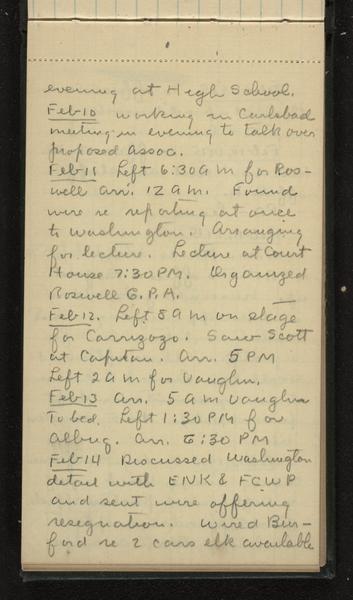 evening at High School.
Feb 10 working in Carlsbad
meeting in evening to talk over
proposed Assoc.
Feb 11 Left 6:30 A M for Ros-
well arr. 12 A M. Found
wire re reporting at once
to Washington. Arranging
for lecture. Lecture at Court
House 7:30 PM. Organized
Roswell G.P.A.
Feb 12. Left 8 A M on stage
for Carrizozo. Saw Scott
at Capitan. Arr. 5 PM
Left 2 A M for Vaughn.
Feb 13 Arr. 5 A M Vaughn
To bed. Left 1:30 PM for
Albuq. Arr. 6:30 PM
Feb 14 Discussed Washington
detail with ENK & FCWP
and sent wire offering
resegnation. Wired Bur-
ford re 2 cars elk available